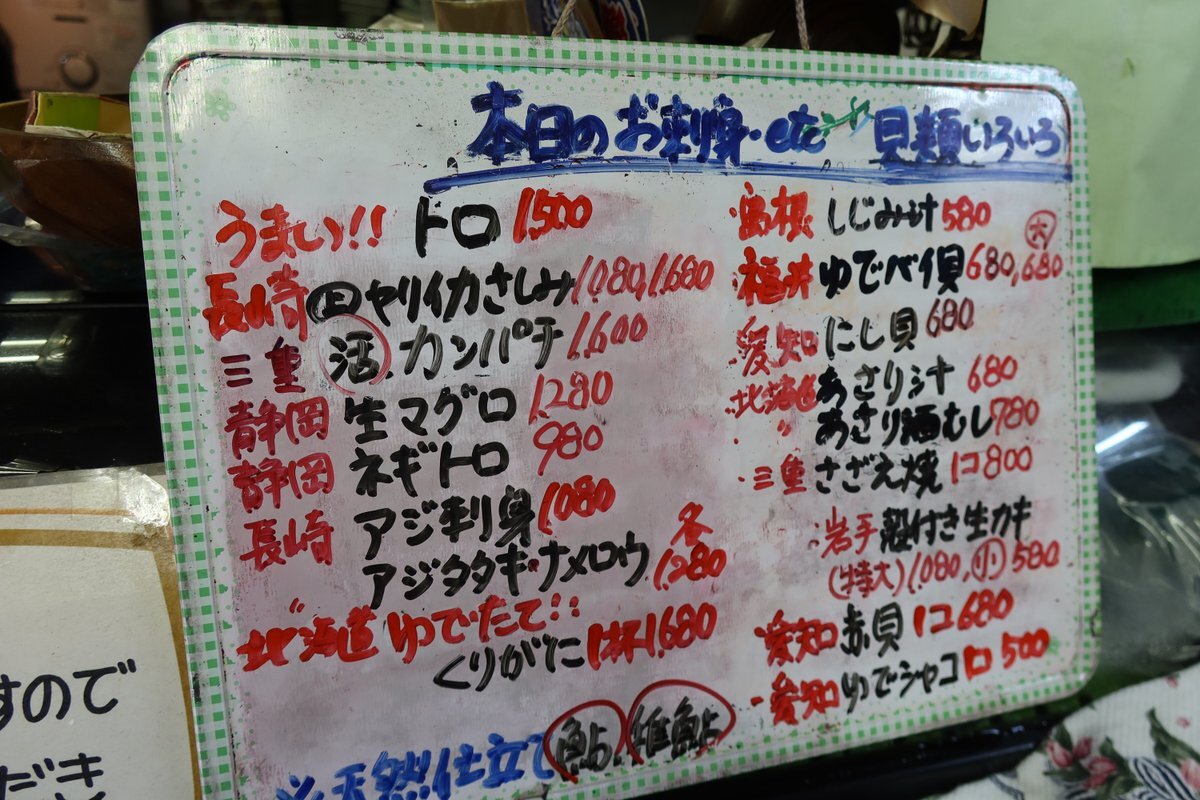 本日のお刺身・etc 貝類いろいろ
うまい!! トロ 1,500
長崎 ヤリイカさしみ 1,080, 1,680
三重 活 カンパチ 1,600
静岡 生マグロ 1,280
静岡 ネギトロ 980
長崎 アジ刺身 1,080
アジタタキ・ナメロウ 各 1,280
北海道 ゆでたて!!
くりがに 1杯 1,680
※天然仕立て 鮎
・島根 しじみ汁 580
・福井 ゆでバイ貝 680, 大 680
・愛知 にし貝 680
・北海道 あさり汁 680
・〃 あさり酒むし 780
・三重 さざえ焼 1コ 800
・岩手 殻付き生カキ
(特大) 1,080, 小 580
・愛知 赤貝 1コ 680
・愛知 ゆでシャコ 500
すので
だき